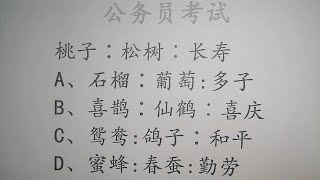 公务员考试
桃子：松树：长寿
A、石榴：葡萄：多子
B、喜鹊：仙鹤：喜庆
C、鸳鸯：鸽子：和平
D、蜜蜂：春蚕：勤劳